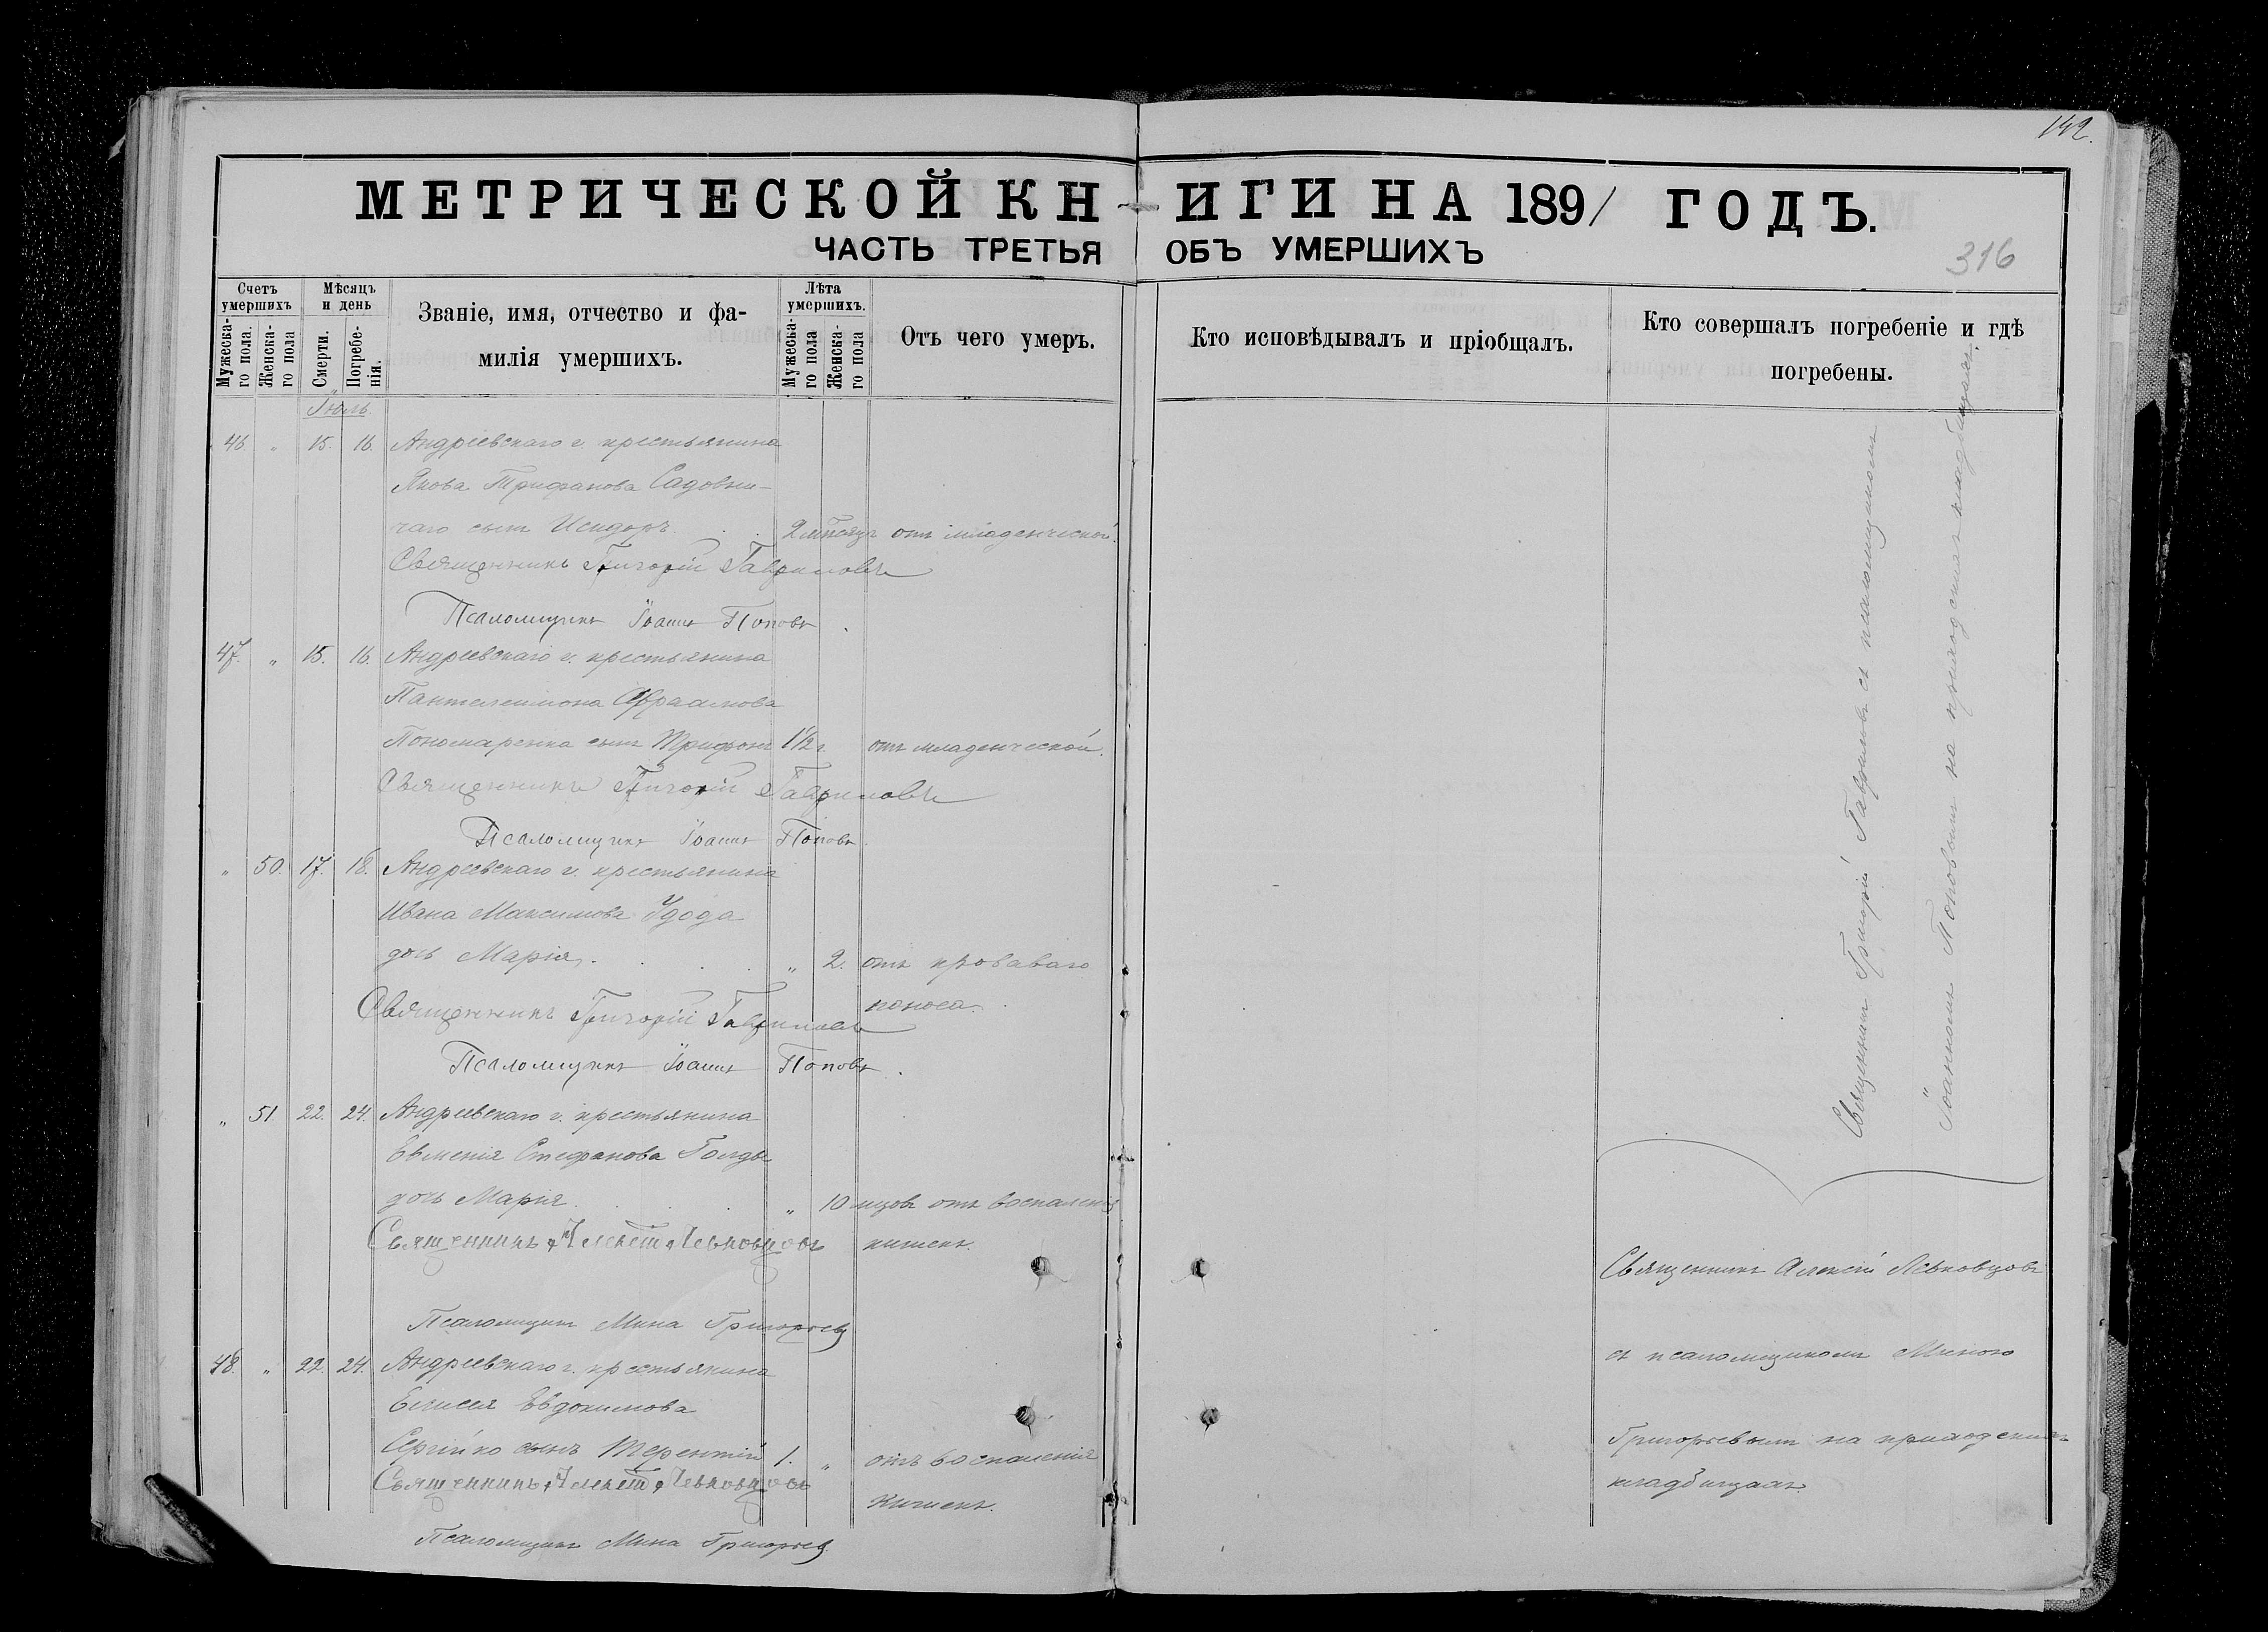 142.
МЕТРИЧЕСКОЙ КНИГИ НА 1891 ГОДЪ.
ЧАСТЬ ТРЕТЬЯ ОБЪ УМЕРШИХЪ
316
Счетъ умершихъ
Мужеска-го пола.
Женска-го пола
Мѣсяцъ и день
Смерти.
Погребе-нія.
Званіе, имя, отчество и фа-
милія умершихъ.
Лѣта умершихъ.
Мужеска-го пола
Женска-го пола
Отъ чего умеръ.
Кто исповѣдывалъ и пріобщалъ.
Кто совершалъ погребеніе и гдѣ
погребены.
Іюль.
46 " 15. 16. Андреевскаго г. крестьянина
Якова Трифанова Садовни-
чаго сынъ Исидоръ 2 мѣсяц. отъ младенческой.
Священникъ Григорій Гавриловъ
Псаломщикъ Іоаннъ Поповъ.
47. " 15. 16. Андреевскаго г. крестьянина
Пантелеимона Авраамова
Пономаренка сынъ Трифонъ 1½ г. отъ младенческой.
Священникъ Григорій Гавриловъ
Псаломщикъ Іоаннъ Поповъ
" 50. 17. 18. Андреевскаго г. крестьянина
Ивана Максимова Удода
дочь Марія. " 2. отъ кроваваго
поноса.
Священникъ Григорій Гавриловъ
Псаломщикъ Іоаннъ Поповъ.
" 51. 22. 24. Андреевскаго г. крестьянина
Евменія Стефанова Голды
дочь Марія. " 10 мцовъ отъ воспаленія
кишекъ.
Священникъ Алексій Левковцовъ
Псаломщикъ Мина Григорьевъ
48. " 22. 24. Андреевскаго г. крестьянина
Елисея Евдокимова
Сергійко сынъ Терентій 1. " отъ воспаленія
кишекъ.
Священникъ Алексій Левковцовъ
Псаломщикъ Мина Григорьевъ.
Священникъ Григорій Гавриловъ съ псаломщикомъ
Іоанномъ Поповымъ на приходскихъ кладбищахъ.
Священникъ Алексій Левковцовъ
съ псаломщикомъ Миною
Григорьевымъ на приходскихъ
кладбищахъ.